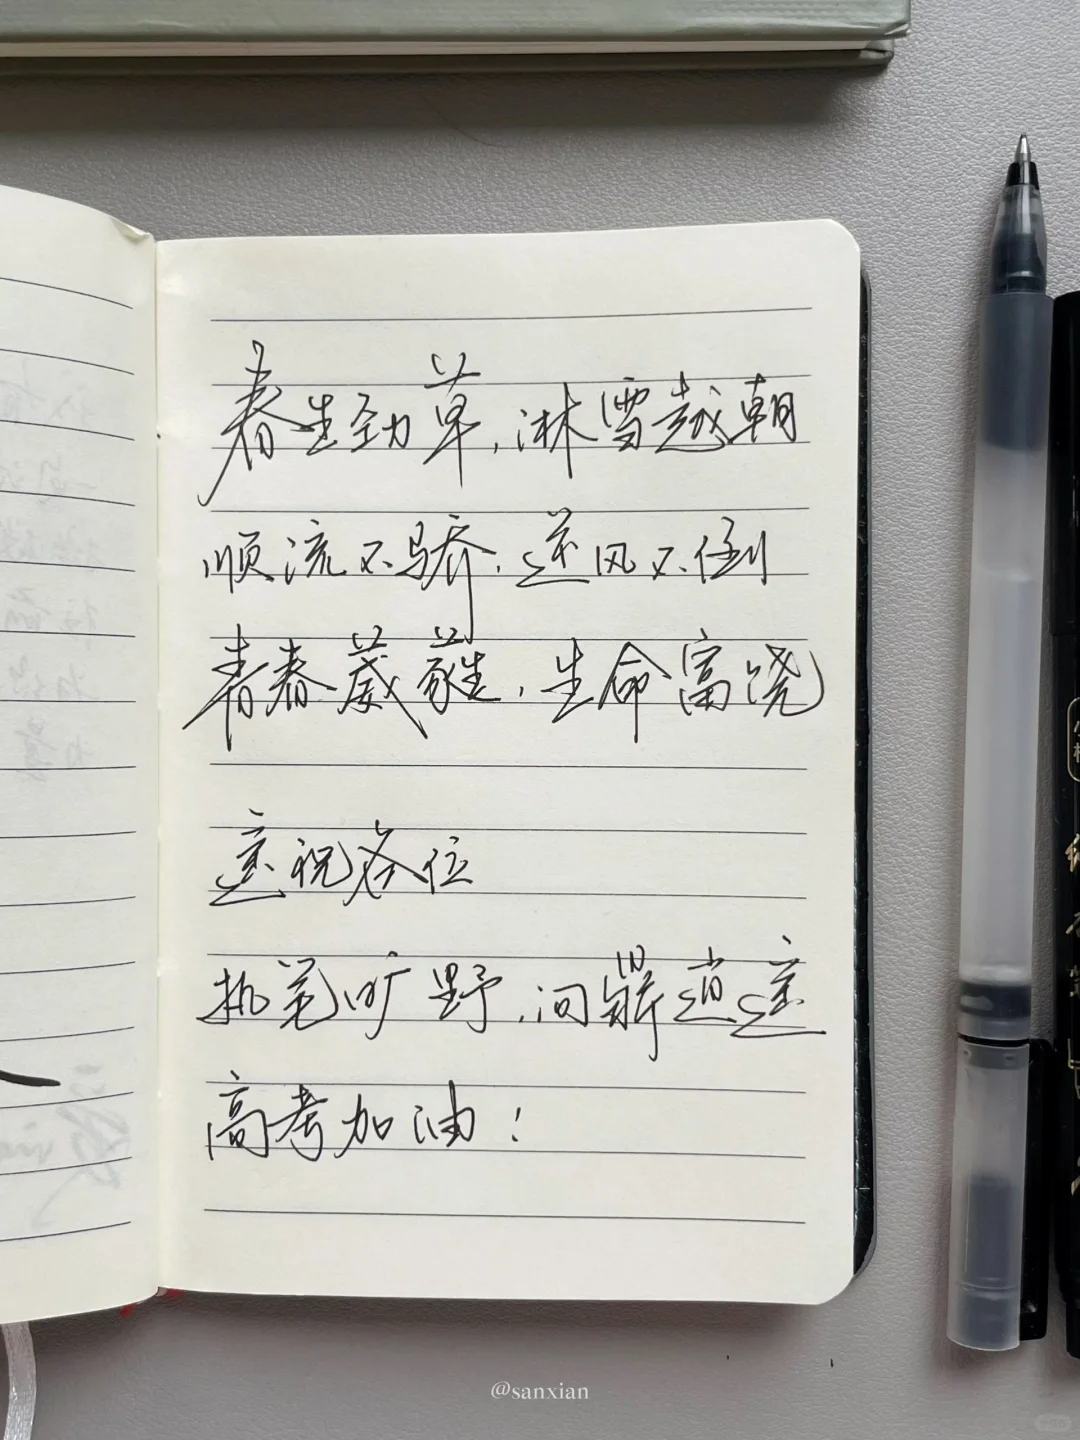 春生劲草，淋雪越朝
顺流不骄，逆风不倒
青春葳蕤，生命富饶
遥祝各位
执笔旷野，问薪逍遥
高考加油！
@sanxian